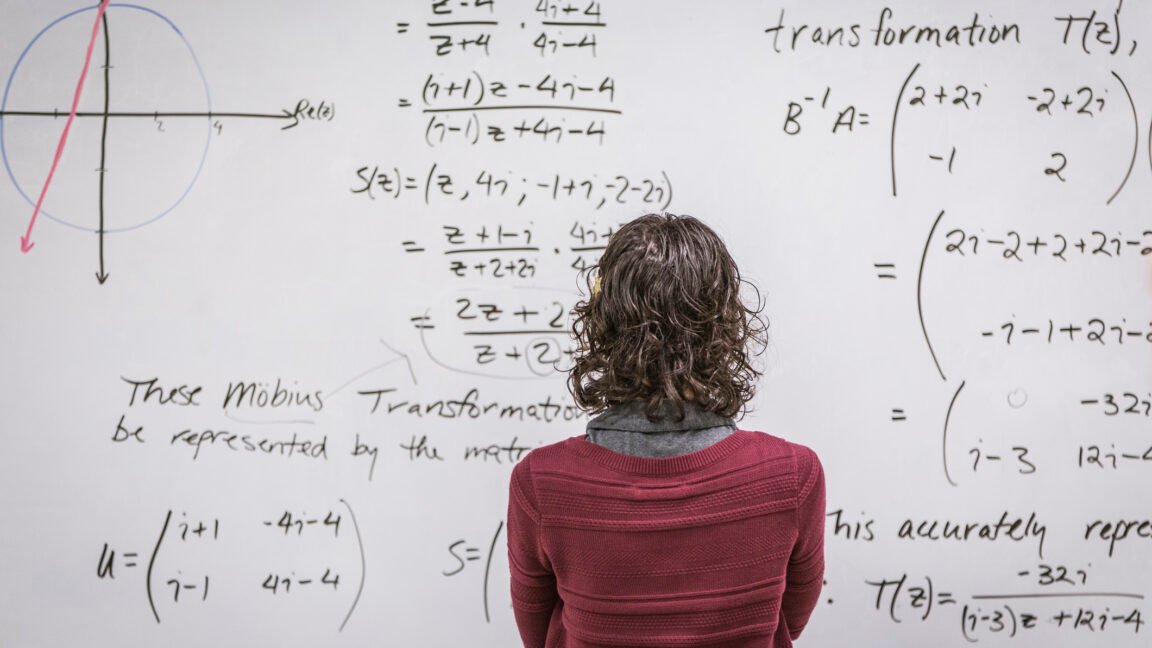 Re(z)
2 4
= z-4/z+4 · 4i+4/4i-4
= (i+1)z-4i-4/(i-1)z+4i-4
S(z)=(z,4i;-1+i,-2-2i)
= z+1-i/z+2+2i ·
= 2z+2
z+2
These Möbius Transformation
be represented by the
U= (i+1 -4i-4
i-1 4i-4)
S=(
transformation T(z),
B⁻¹A= (2+2i -2+2i
-1 2)
= (2i-2+2+2i-2
-i-1+2i-2
= (0 -32i
i-3 12i-4
This accurately
T(z)= -32i/(i-3)z+12i-4